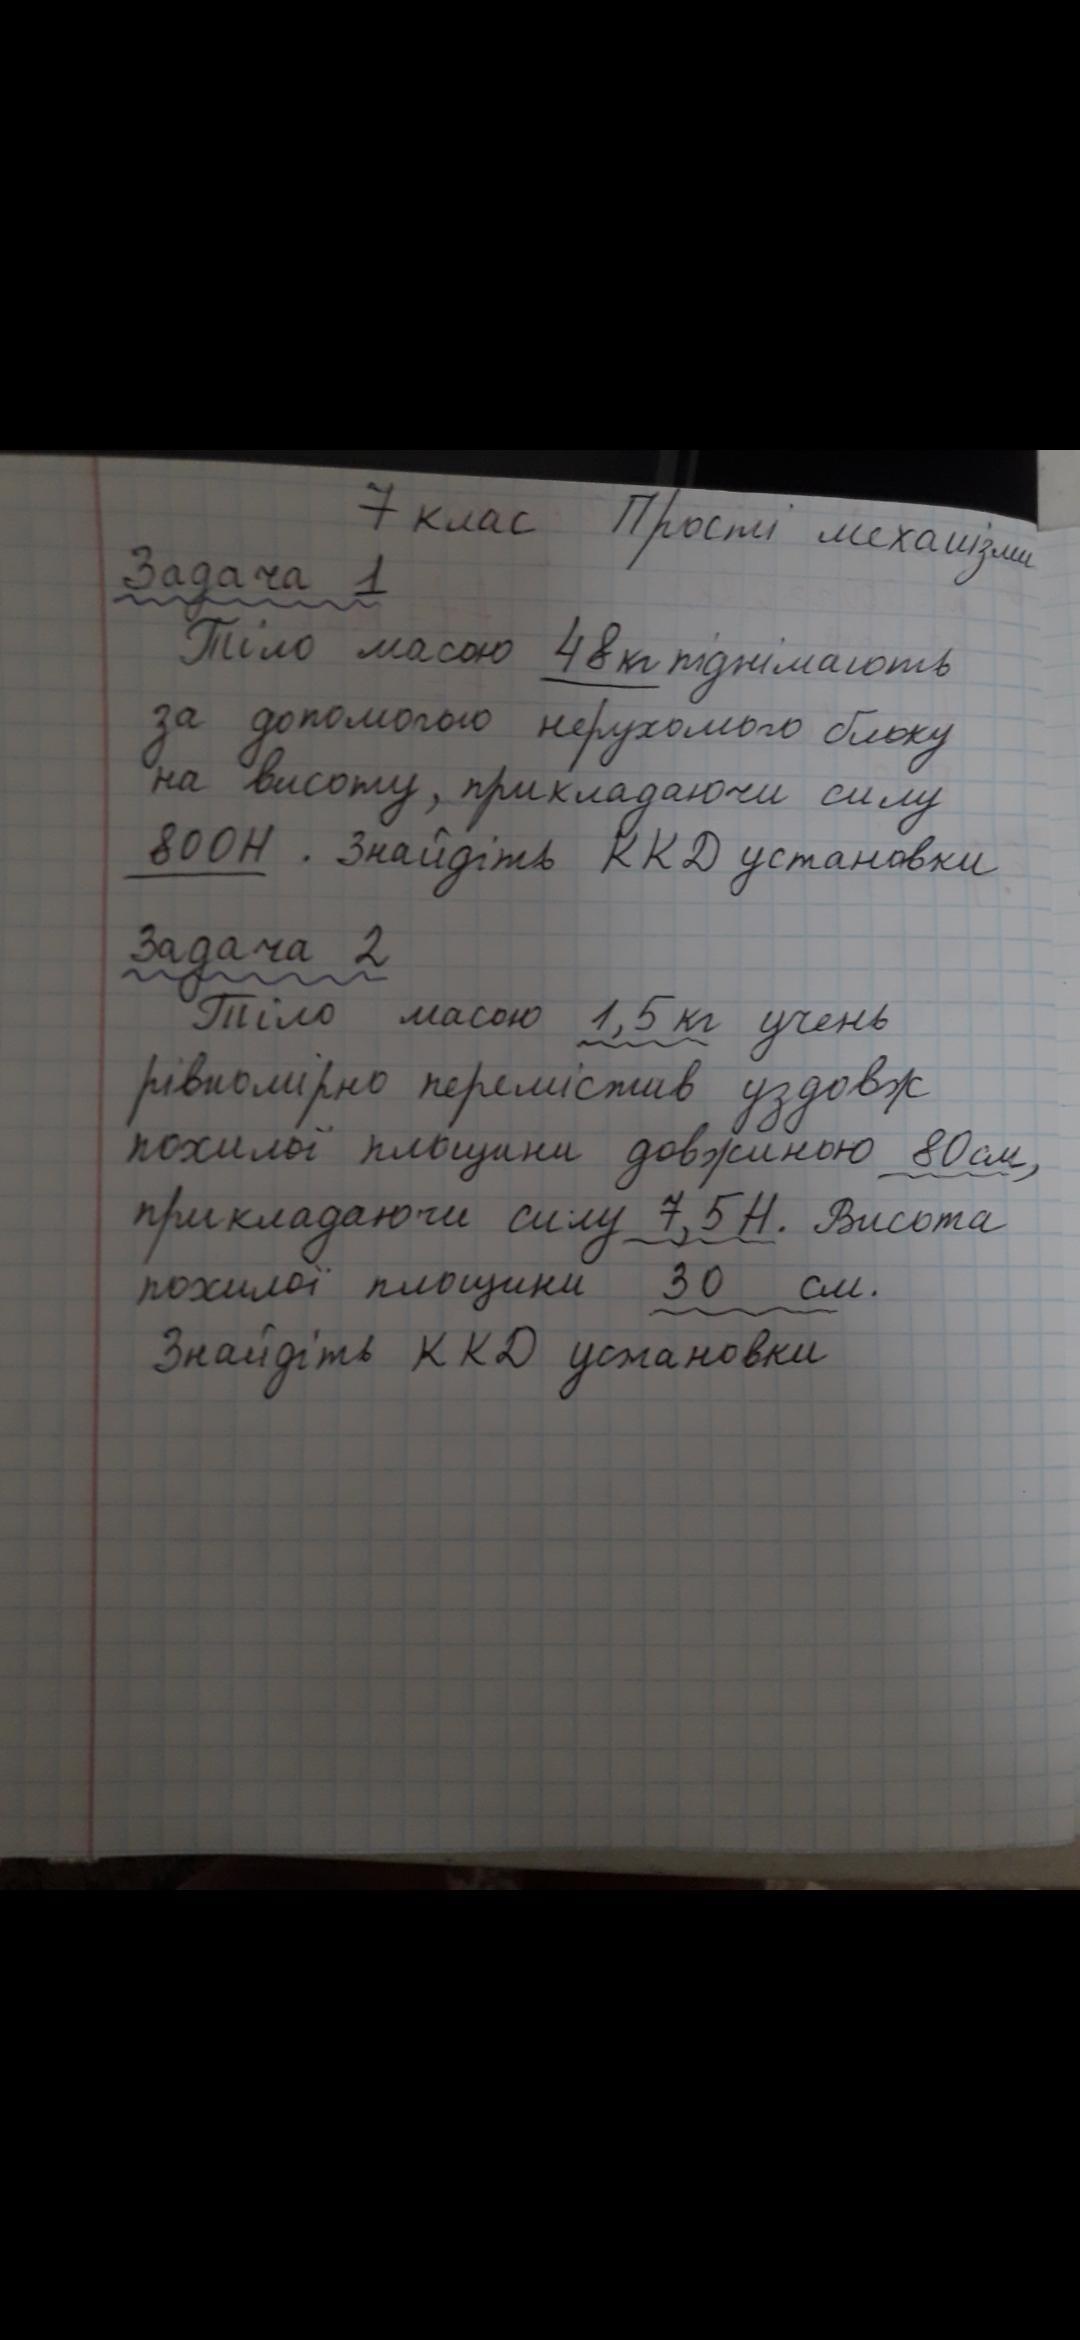 7 клас Прості механізми
Задача 1
Тіло масою 48кг піднімають
за допомогою нерухомого блоку
на висоту, прикладаючи силу
800Н. Знайдіть ККД установки
Задача 2
Тіло масою 1,5 кг учень
рівномірно перемістив уздовж
похилої площини довжиною 80см,
прикладаючи силу 7,5Н. Висота
похилої площини 30 см.
Знайдіть ККД установки